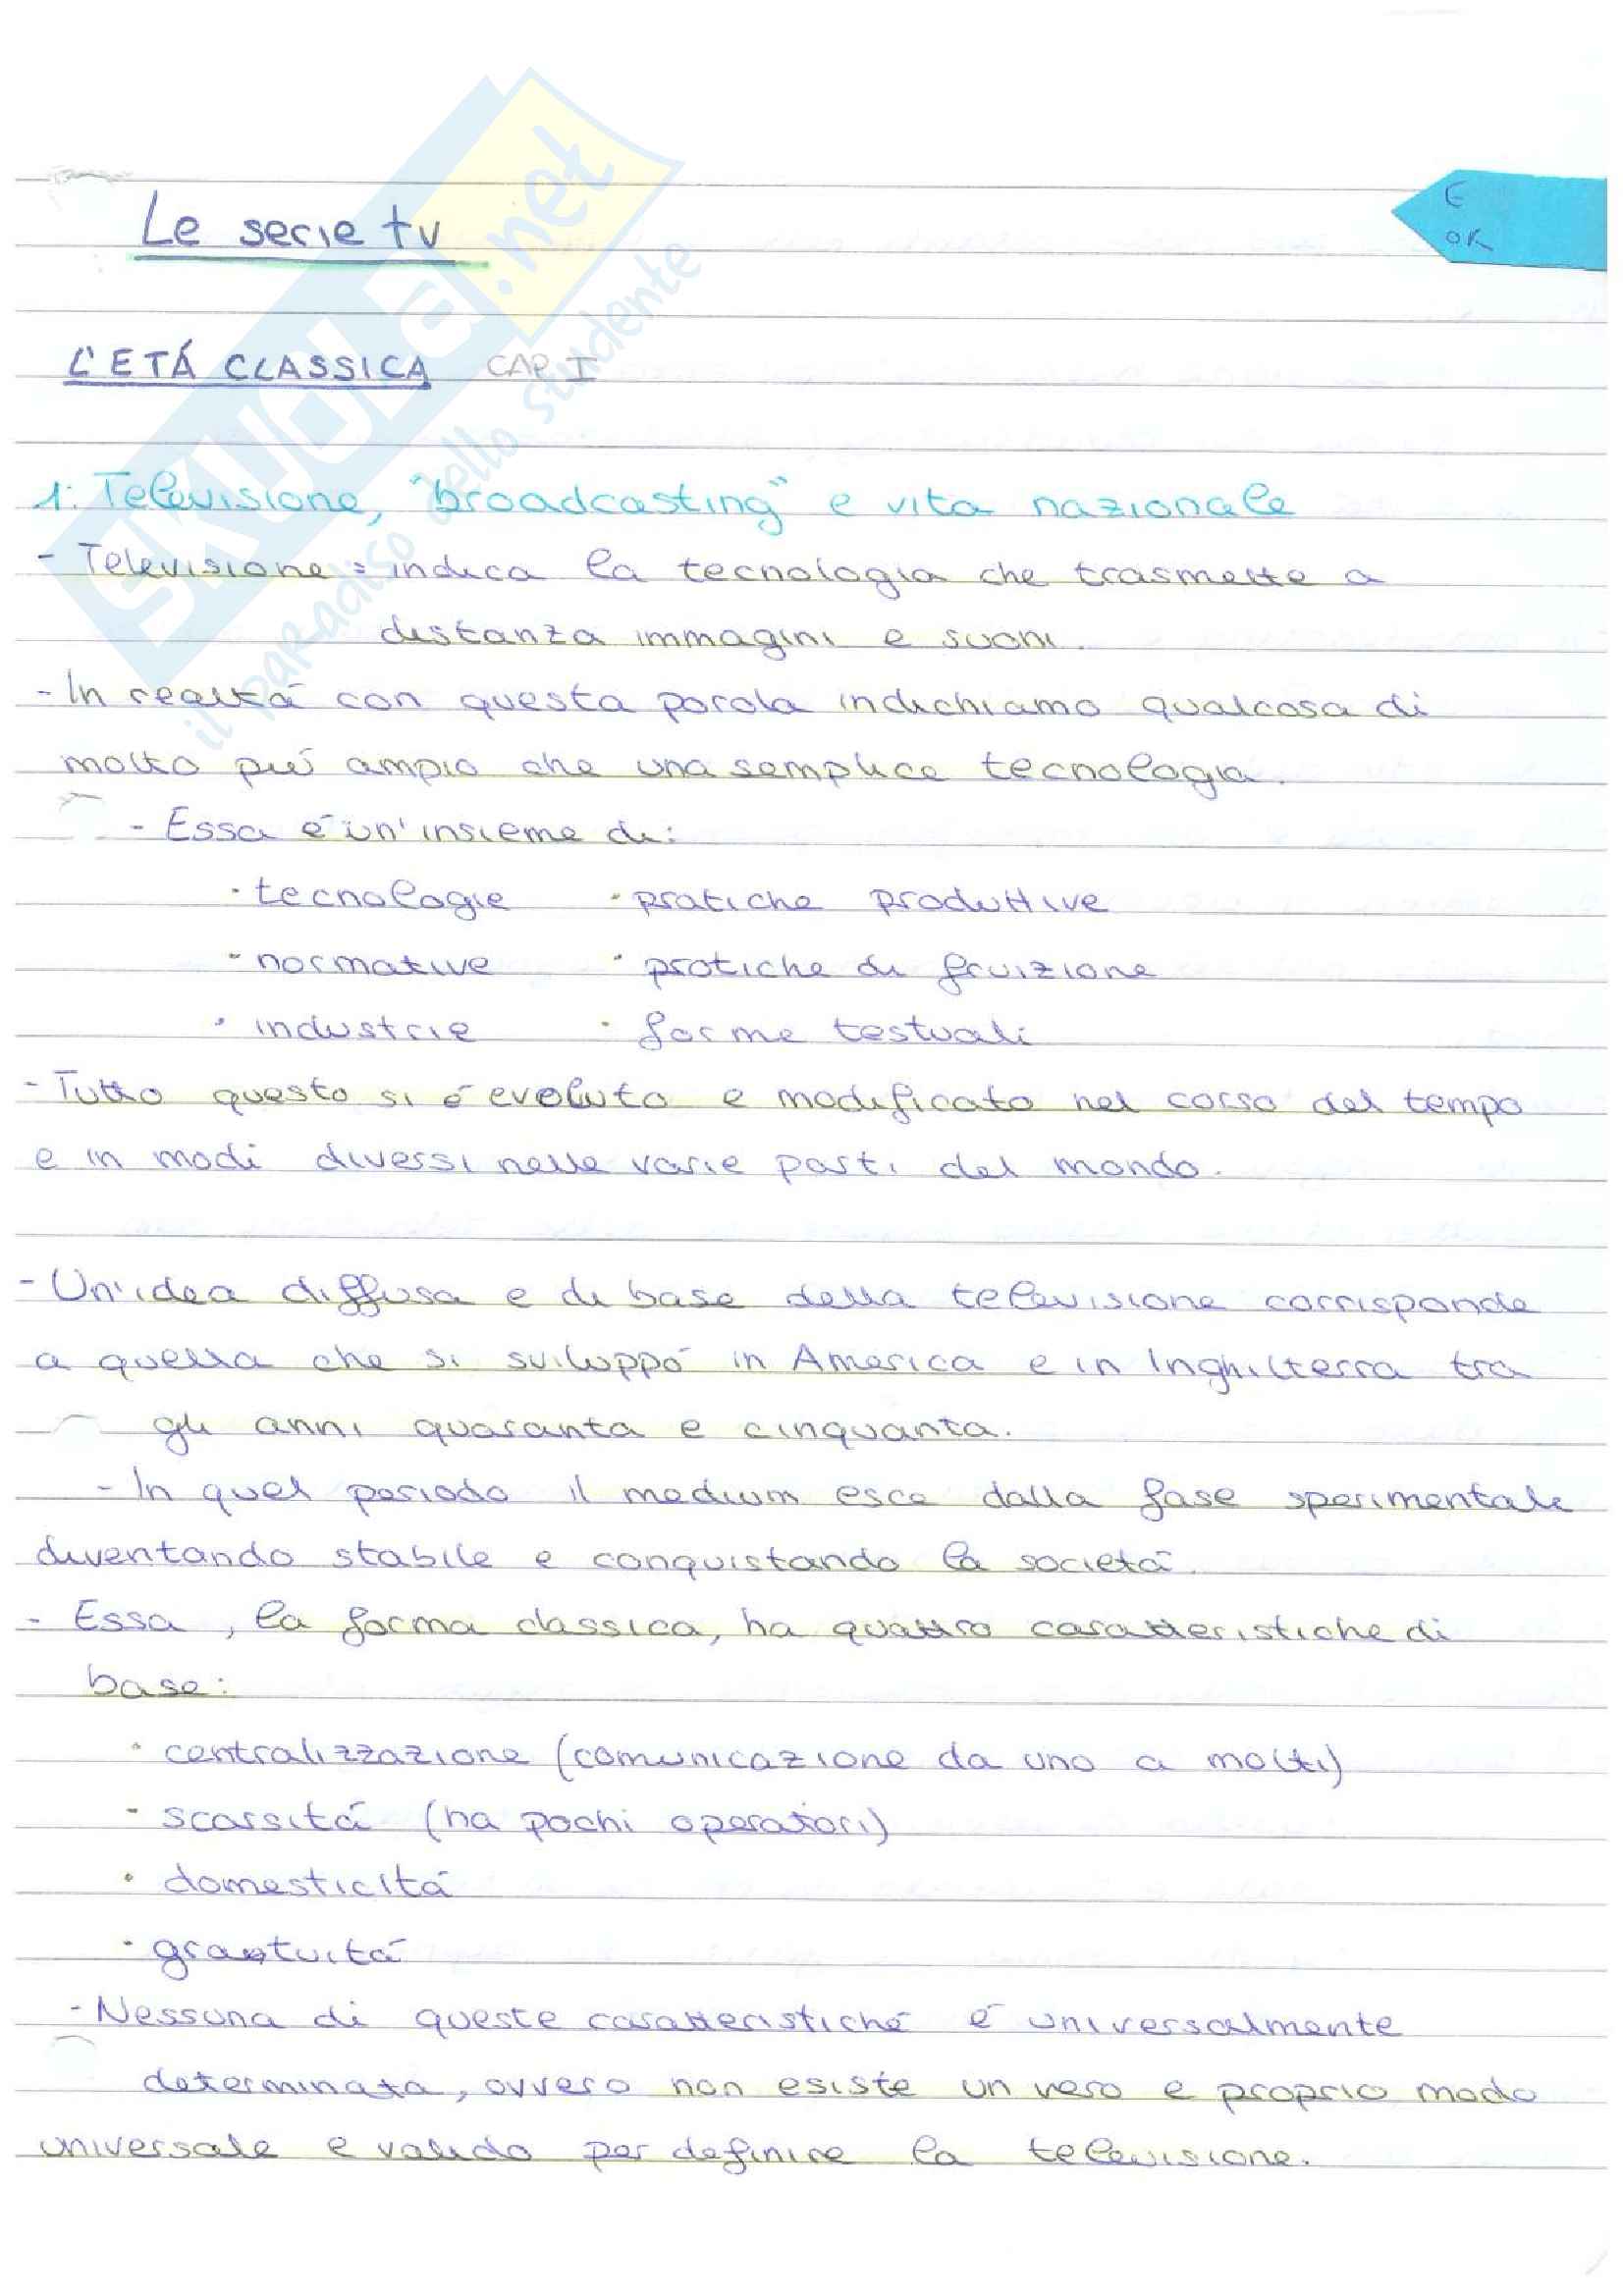 Le serie tv
E
OK
L'ETÁ CLASSICA CAP I
1. Televisione, "broadcasting" e vita nazionale
- Televisione = indica la tecnologia che trasmette a
distanza immagini e suoni.
- In realtá con questa parola indichiamo qualcosa di
molto piú ampio che una semplice tecnologia.
- Essa é un'insieme di:
· tecnologie · pratiche produttive
· normative · pratiche di fruizione
· industrie · forme testuali
- Tutto questo si é evoluto e modificato nel corso del tempo
e in modi diversi nelle varie parti del mondo.
- Un'idea diffusa e di base della televisione corrisponde
a quella che si sviluppó in America e in Inghilterra tra
gli anni quaranta e cinquanta.
- In quel periodo il medium esce dalla fase sperimentale
diventando stabile e conquistando la societá.
- Essa, la forma classica, ha quattro caratteristiche di
base:
· centralizzazione (comunicazione da uno a molti)
· scarsitá (ha pochi operatori)
· domesticitá
· gratuitá
- Nessuna di queste caratteristiché é universalmente
determinata, ovvero non esiste un vero e proprio modo
universale e valido per definire la televisione.
SKUOLA.net
il paradiso dello studente